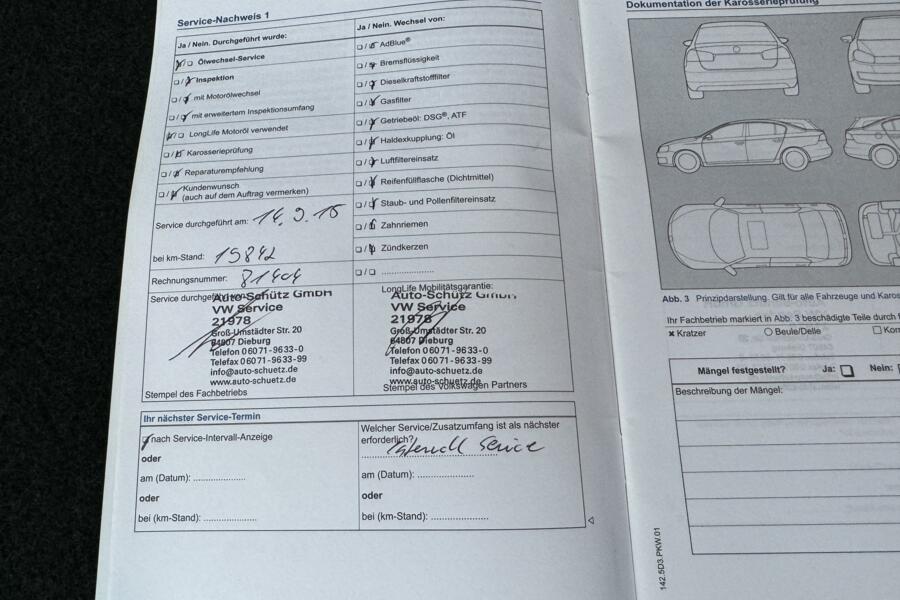 Service-Nachweis 1
Ja / Nein. Durchgeführt wurde:
Ölwechsel-Service
Inspektion
mit Motorölwechsel
mit erweitertem Inspektionsumfang
LongLife Motoröl verwendet
Karosserieprüfung
Reparaturempfehlung
Kundenwunsch
(auch auf dem Auftrag vermerken)
Service durchgeführt am: 14.9.15
bei km-Stand: 15842
Rechnungsnummer: 81404
Ja / Nein. Wechsel von:
AdBlue®
Bremsflüssigkeit
Dieselkraftstofffilter
Gasfilter
Getriebeöl: DSG®, ATF
Haldexkupplung: Öl
Luftfiltereinsatz
Reifenfüllflasche (Dichtmittel)
Staub- und Pollenfiltereinsatz
Zahnriemen
Zündkerzen
Service durchgeführt
Auto-Schütz GmbH
VW Service
21978
Groß-Umstädter Str. 20
64807 Dieburg
Telefon 06071-9633-0
Telefax 06071-9633-99
info@auto-schuetz.de
www.auto-schuetz.de
Stempel des Fachbetriebs
LongLife Mobilitätsgarantie:
Auto-Schütz GmbH
VW Service
21978
Groß-Umstädter Str. 20
64807 Dieburg
Telefon 06071-9633-0
Telefax 06071-9633-99
info@auto-schuetz.de
www.auto-schuetz.de
Stempel des Volkswagen Partners
Ihr nächster Service-Termin
nach Service-Intervall-Anzeige
oder
am (Datum): ....................
oder
bei (km-Stand): ....................
Welcher Service/Zusatzumfang ist als nächster
erforderlich?
Service
am (Datum): ....................
oder
bei (km-Stand): ....................
Dokumentation der Karosserieprüfung
Abb. 3 Prinzipdarstellung. Gilt für alle Fahrzeuge und
Ihr Fachbetrieb markiert in Abb. 3 beschädigte Teile durch
Kratzer
Beule/Delle
Mängel festgestellt? Ja: Nein:
Beschreibung der Mängel:
142.5D3.PKW.01